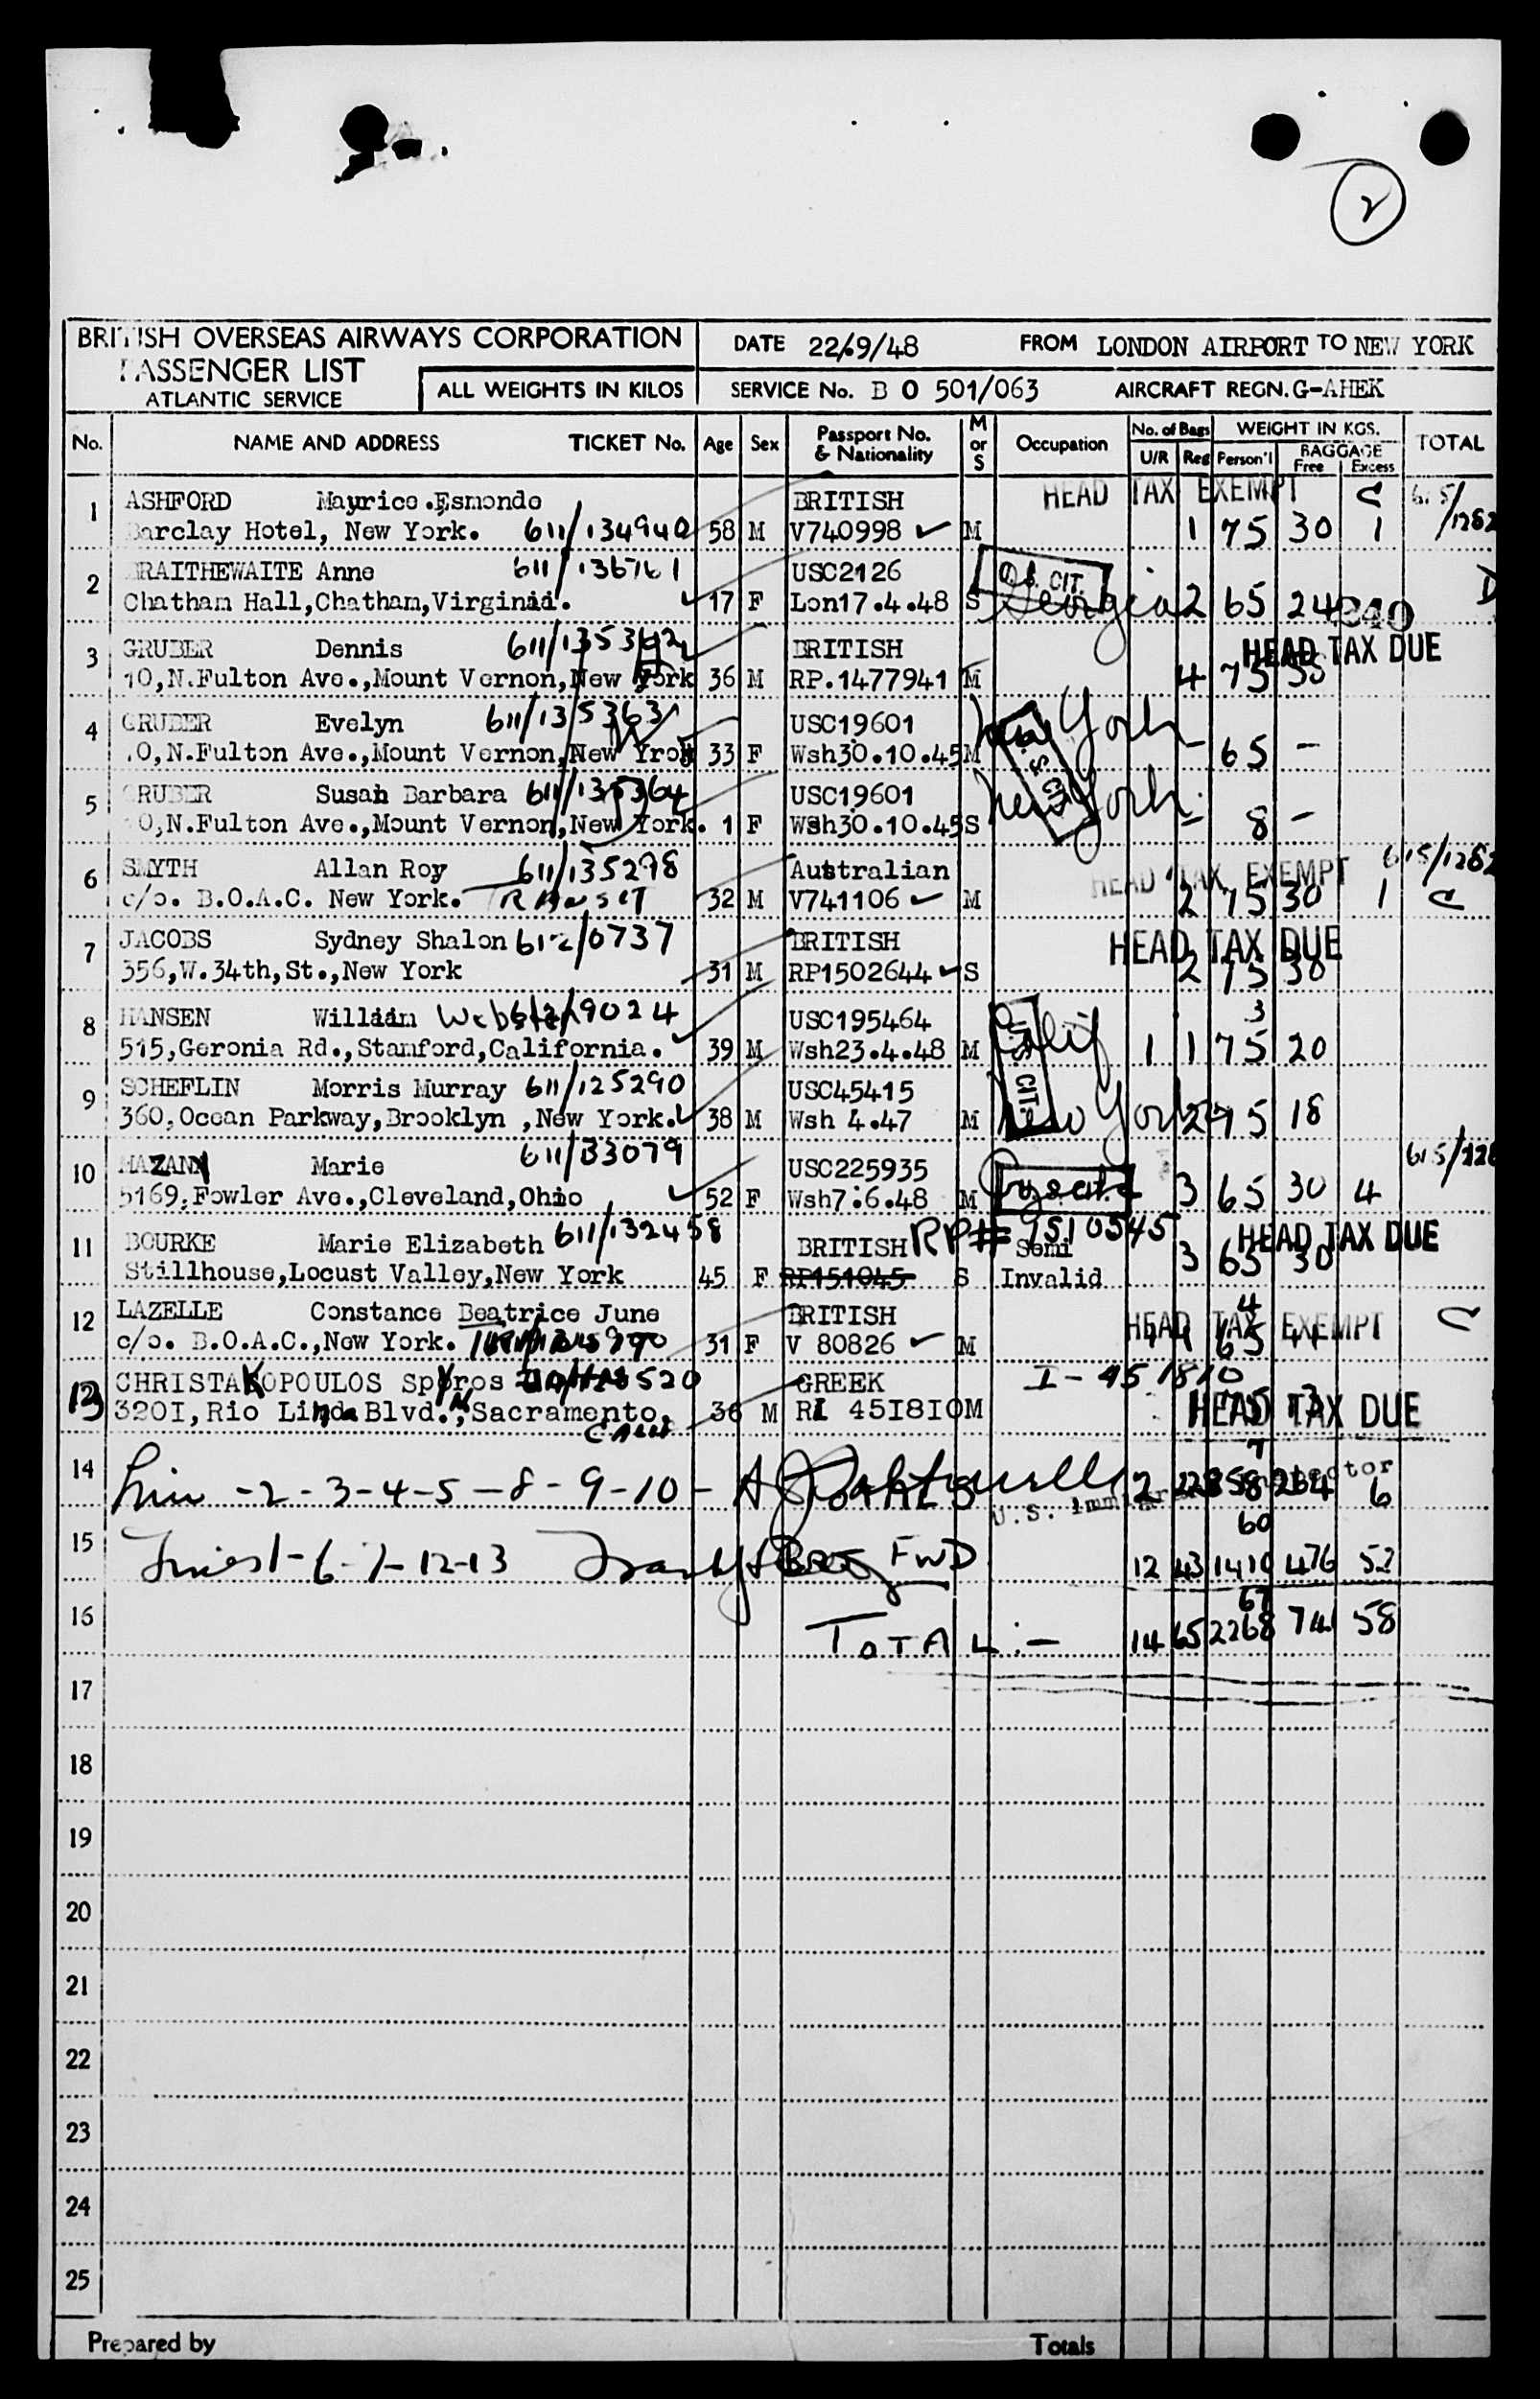 2
BRITISH OVERSEAS AIRWAYS CORPORATION
PASSENGER LIST
ATLANTIC SERVICE
ALL WEIGHTS IN KILOS
DATE 22/9/48 FROM LONDON AIRPORT TO NEW YORK
SERVICE No. B O 501/063 AIRCRAFT REGN. G-AHEK
No. NAME AND ADDRESS TICKET No. Age Sex Passport No. & Nationality M or S Occupation No. of Bags U/R Reg WEIGHT IN KGS. Person'l BAGGAGE Free Excess TOTAL
1 ASHFORD Maurice Esmonde BRITISH HEAD TAX EXEMPT C
Barclay Hotel, New York. 611/134940 58 M V740998 M 1 75 30 1
2 BRAITHEWAITE Anne 611/136761 USC2126 U.S. CIT.
Chatham Hall,Chatham,Virginia. 17 F Lon17.4.48 S Georgia 2 65 24 D
3 GRUBER Dennis BRITISH HEAD TAX DUE
10,N.Fulton Ave.,Mount Vernon,New York 36 M RP.1477941 M 4 75
4 GRUBER Evelyn 611/135363 USC19601
10,N.Fulton Ave.,Mount Vernon,New Yrok 33 F Wsh30.10.45 M New York - 65 -
5 GRUBER Susan Barbara 611/135364 USC19601
10,N.Fulton Ave.,Mount Vernon,New York. 1 F Wsh30.10.45 S New York - 8 -
6 SMYTH Allan Roy 611/135278 Australian HEAD TAX EXEMPT
c/o. B.O.A.C. New York. TRANSIT 32 M V741106 M 2 75 30 1 C
7 JACOBS Sydney Shalon 612/0737 BRITISH HEAD TAX DUE
356,W.34th,St.,New York 31 M RP1502644 S 2 75 30
8 HANSEN William USC195464 3
515,Geronia Rd.,Stamford,California. 39 M Wsh23.4.48 M Calif U.S. CIT. 1 1 75 20
9 SCHEFLIN Morris Murray 611/125290 USC45415
360,Ocean Parkway,Brooklyn ,New York. 38 M Wsh 4.47 M New York 2 75 18
10 MAZANY Marie 611/133079 USC225935
5169,Fowler Ave.,Cleveland,Ohio 52 F Wsh7.6.48 M 3 65 30 4
11 BOURKE Marie Elizabeth 611/132458 BRITISH RP# 1510545 Semi HEAD TAX DUE
Stillhouse,Locust Valley,New York 45 F RP151045 S Invalid 3 65 30
12 LAZELLE Constance Beatrice June BRITISH 4 HEAD TAX EXEMPT C
c/o. B.O.A.C.,New York. 31 F V 80826 M 65
13 CHRISTAKOPOULOS Spyros GREEK
3201,Rio Linda Blvd.,N Sacramento, Calif 36 M RI 451810 M HEAD TAX DUE
14 Line -2-3-4-5-8-9-10- TOTALS U.S. Immigrant Inspector 2 22 858 264 6
15 Lines 1-6-7-12-13 FWD 12 43 1410 476 52
16 TOTAL :- 14 65 2268 741 58
17
18
19
20
21
22
23
24
25
Prepared by Totals